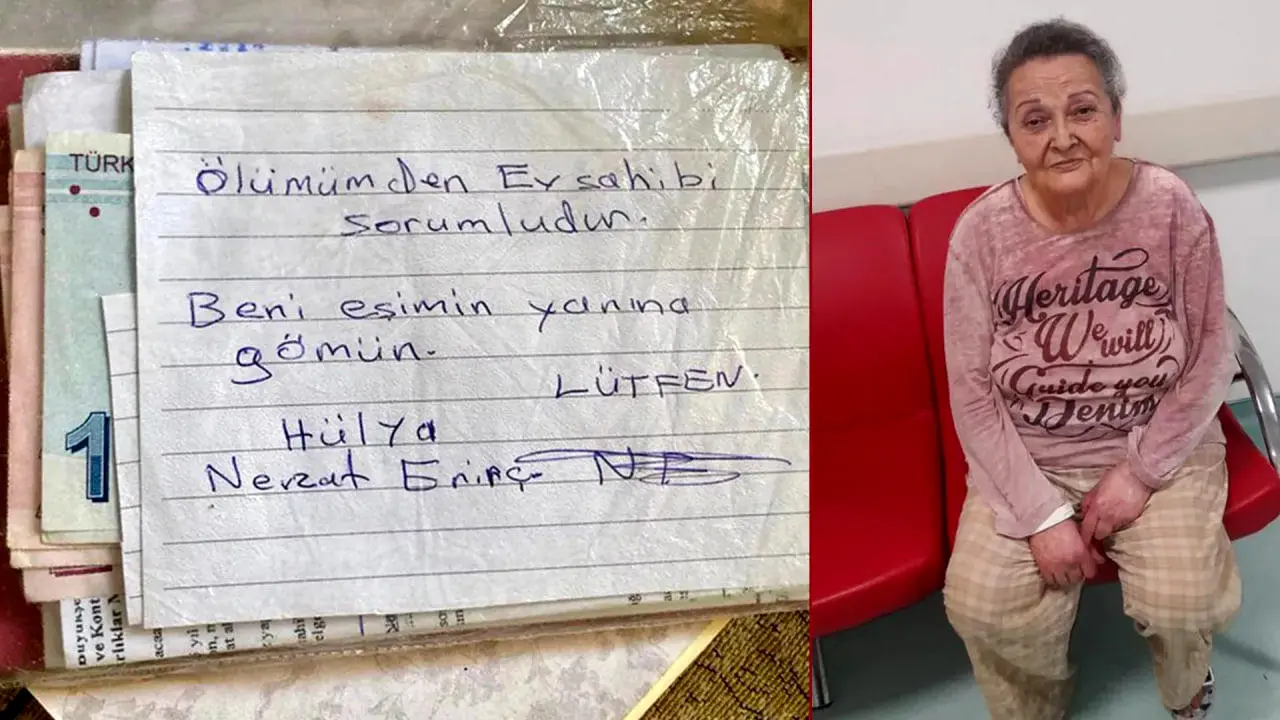 TÜRK
1
Ölümümden Ev sahibi
sorumludur.
Beni eşimin yanına
gömün.
LÜTFEN.
Hülya
Nevzat
ve Kont
Heritage
We will
Guide you
Denim